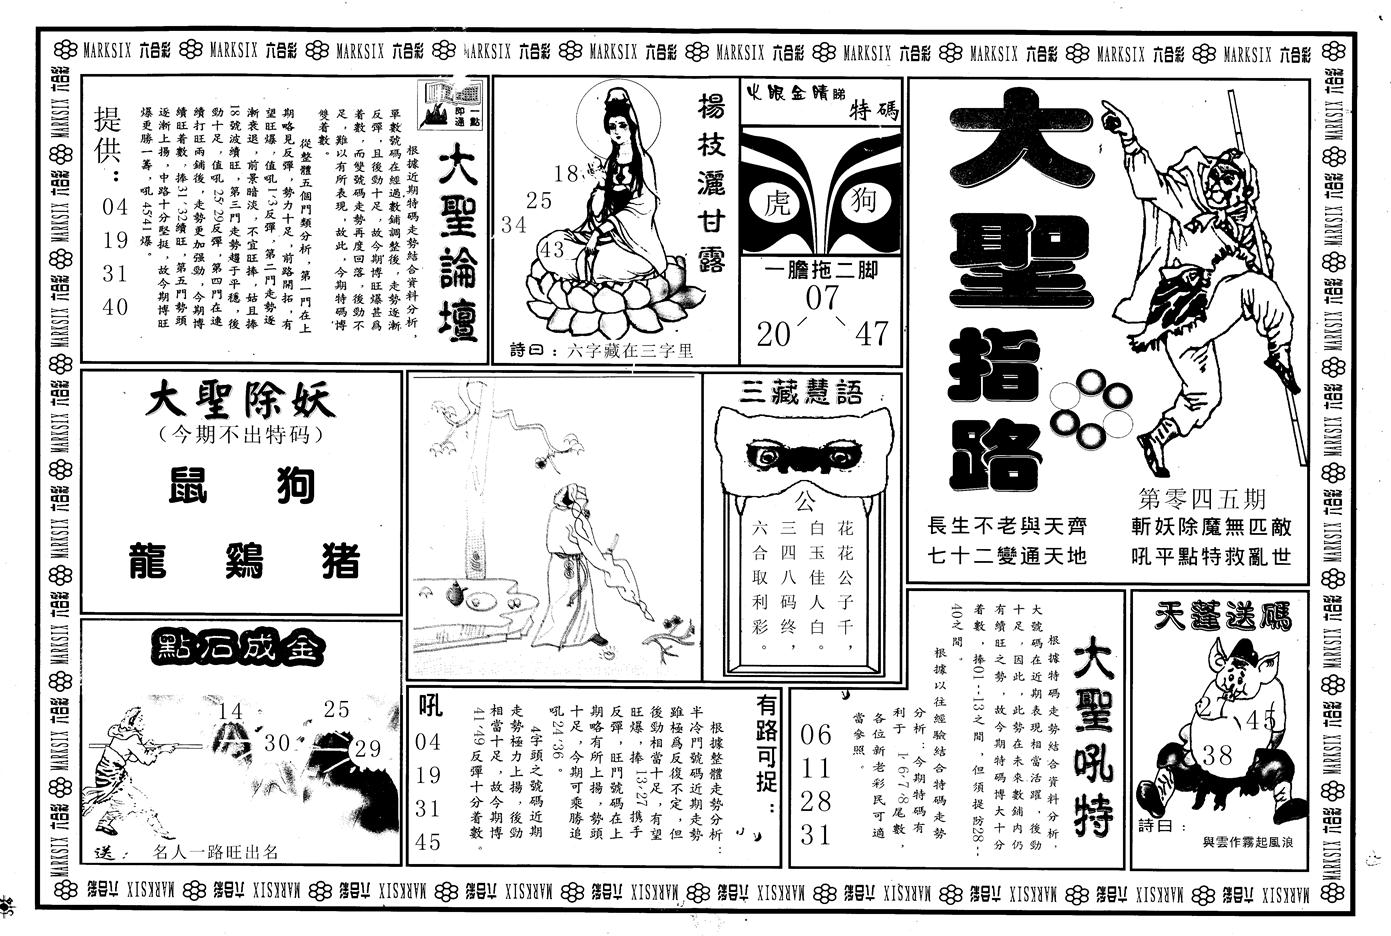 MARKSIX 六合彩 MARKSIX 六合彩 MARKSIX 六合彩 MARKSIX 六合彩 MARKSIX 六合彩 MARKSIX 六合彩 MARKSIX 六合彩 MARKSIX 六合彩 MARKSIX 六合彩 MARKSIX 六合彩
大聖指路
第零四五期
長生不老與天齊
斬妖除魔無匹敵
七十二變通天地
吼平點特救亂世
火眼金睛睇特碼
虎
狗
一膽拖二脚
07
20
47
楊枝灑甘露
18
25
34
43
詩曰：六字藏在三字里
一點即通
大聖論壇
根據近期特碼走勢結合資料分析，
單數號碼在經過數鋪調整後，走勢逐漸
反彈，且後勁十足，故今期博旺爆甚爲
着數，而雙號碼走勢再度回落，後勁不
足，難以有所表現，故此，今期特碼博
雙着數。
從整體五個門類分析，第一門在上
期略見反彈，勢力十足，前路開拓，有
望旺爆，值吼1·3反彈，第二門走勢逐
漸衰退，前景暗淡，不宜旺捧，姑且捧
18號波續旺，第三門走勢趨于平穩，後
勁十足，值吼25·29反彈，第四門在連
續打旺兩鋪後，走勢更加强勁，今期博
續旺着數，捧31·32續旺，第五門勢頭
逐漸上揚，中路十分堅挺，故今期博旺
爆更勝一籌，吼45·41爆。
提供：
04
19
31
40
大聖除妖
（今期不出特码）
鼠
狗
龍
鷄
猪
三藏慧語
公
花花公子千，
白玉佳人白。
三四八码终，
六合取利彩。
點石成金
14
25
30
29
送：
名人一路旺出名
有路可捉：
根據整體走勢分析：
半冷門號碼近期走勢
雖極爲反復不定，但
後勁相當十足，有望
旺爆，捧13·27携手
反彈，旺門號碼在上
期略有所上揚，勢頭
十足，今期可乘勝追
吼24·36。
4字頭之號碼近期
走勢極力上揚，後勁
相當十足，故今期博
41·49反彈十分着數。
吼
04
19
31
45
大聖吼特
根據特碼走勢結合資料分析，
大號碼在近期表現相當活躍，後勁
十足，因此，此勢在未來數鋪内仍
有續旺之勢，故今期特碼博大十分
着數，捧01--13之間，但須提防28--
40之間。
根據以往經驗結合特碼走勢
分析：今期特碼有
利于 1·6·7·8尾數，
各位新老彩民可適
當參照。
06
11
28
31
天蓬送碼
45
38
詩曰：
與雲作霧起風浪